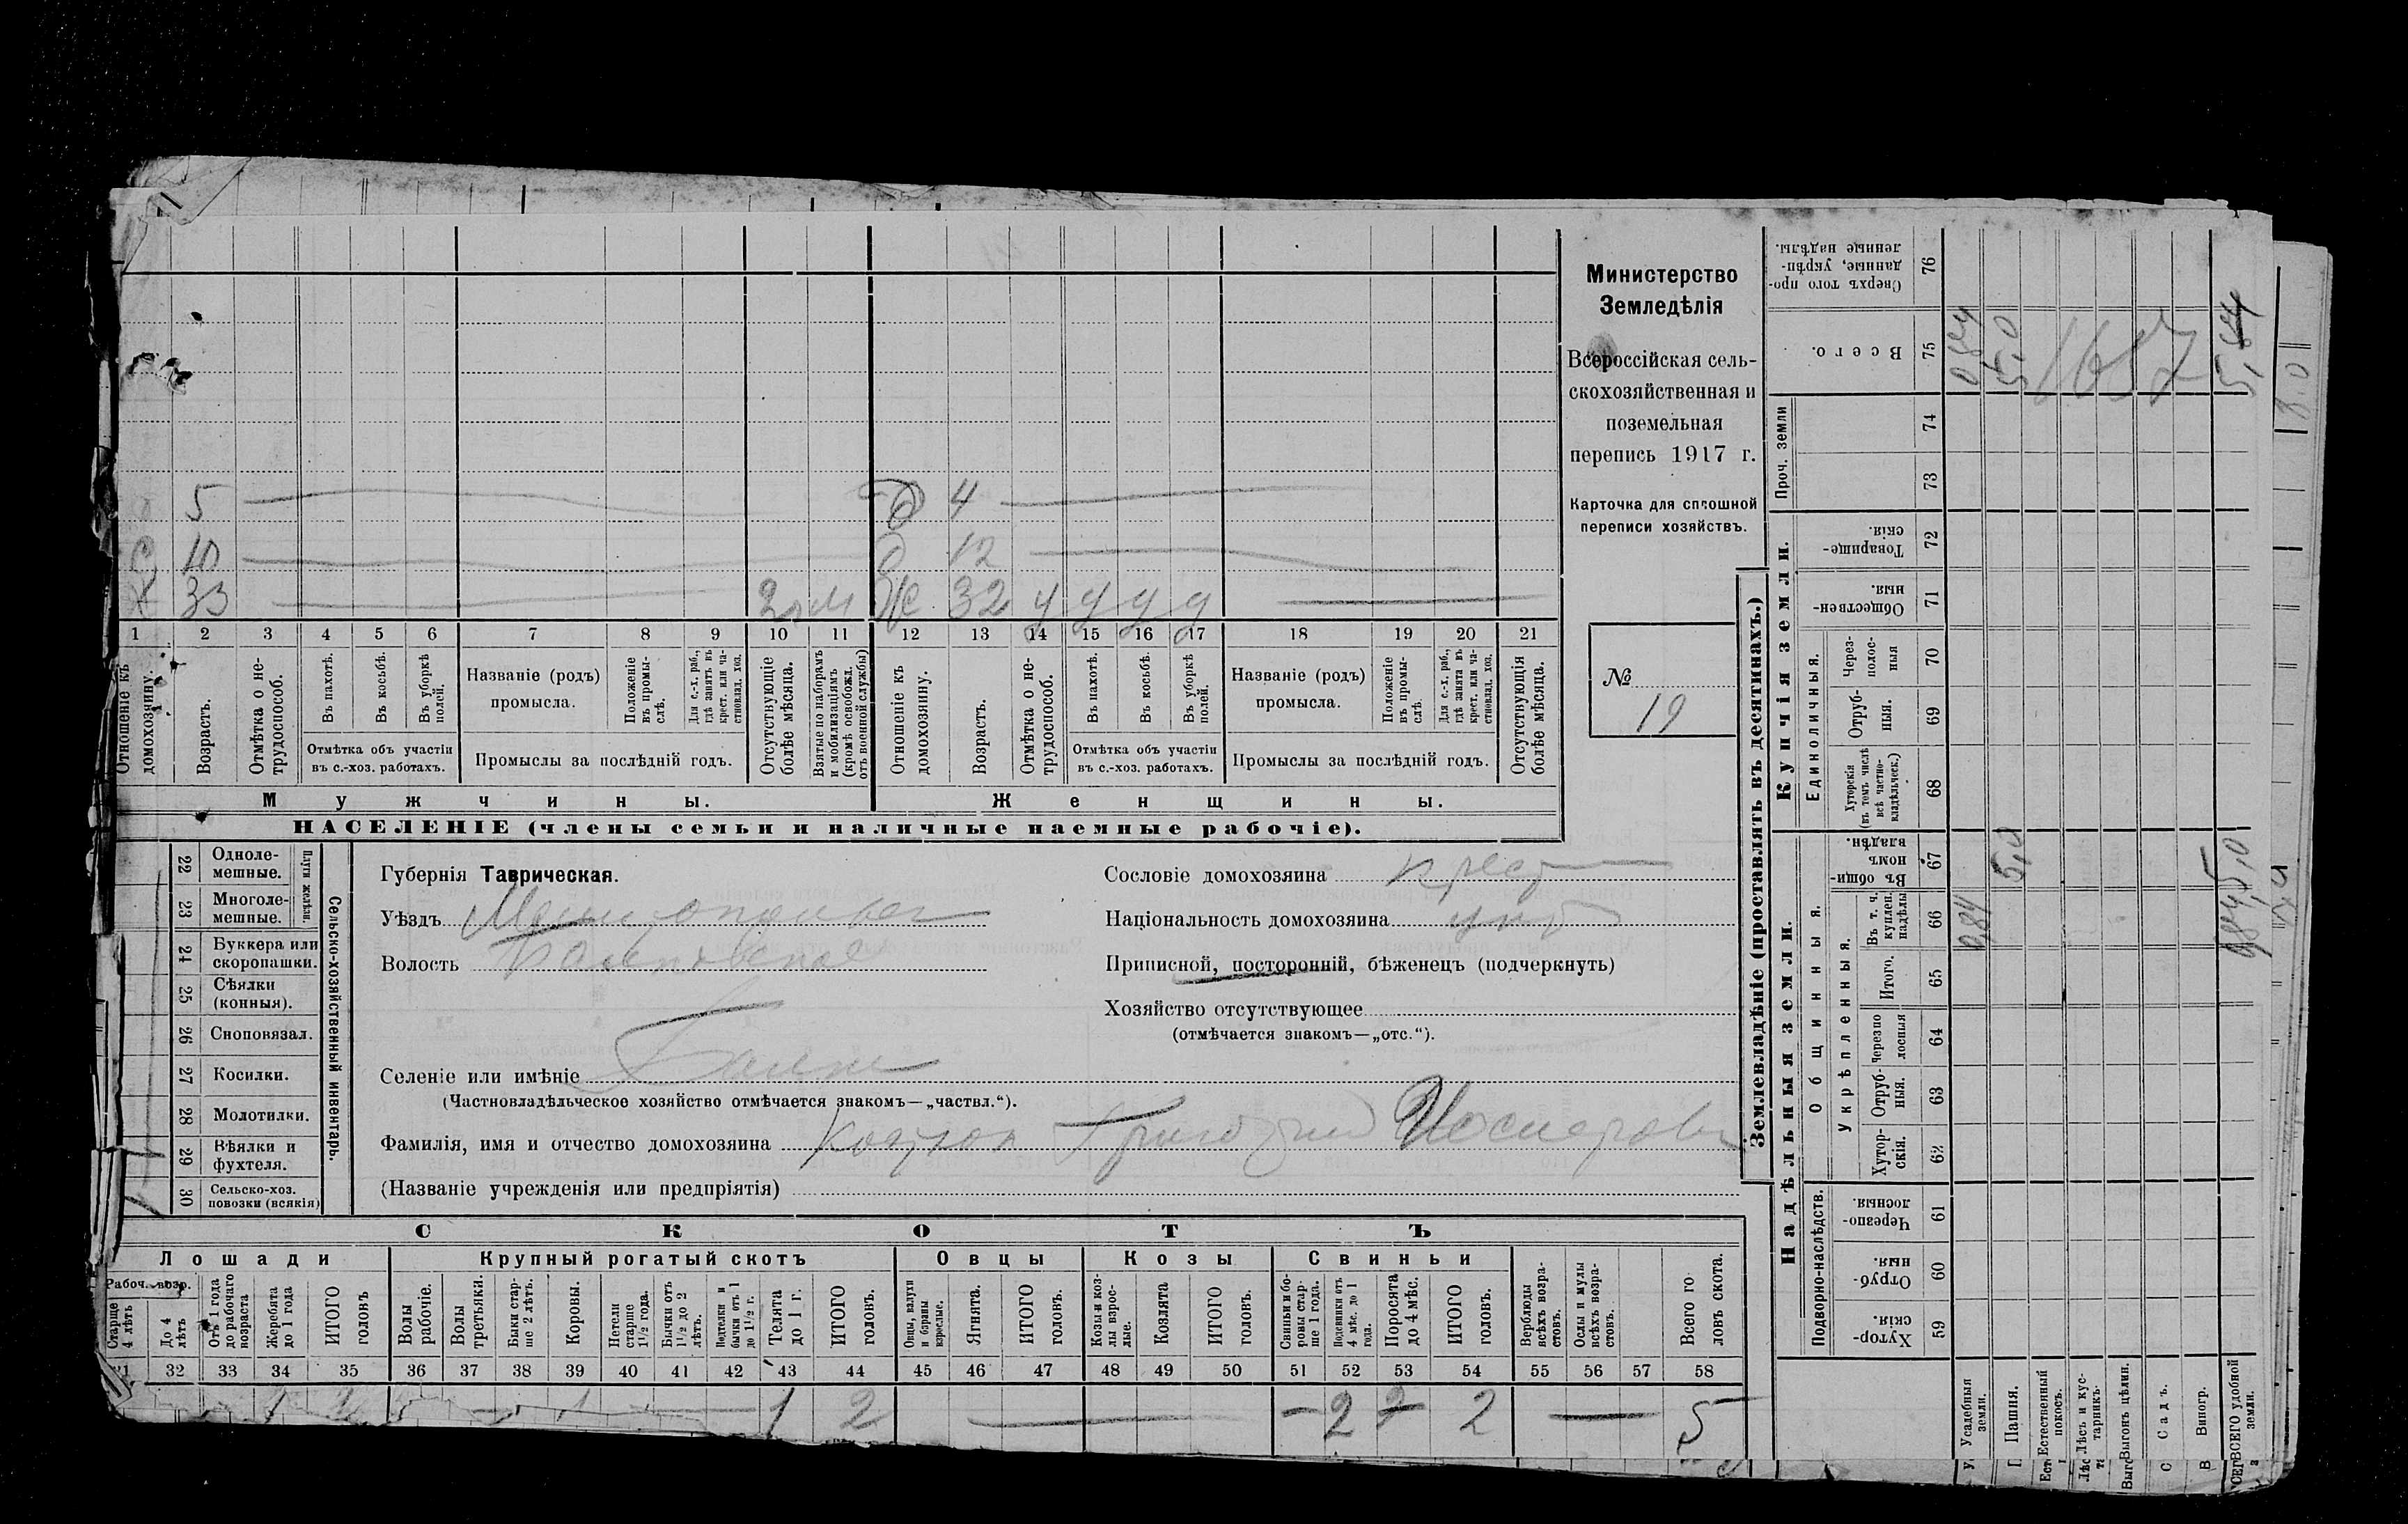 5 4
10 12
Х 33 2 м Ж 32 у у у у
1 2 3 4 5 6 7 8 9 10 11 12 13 14 15 16 17 18 19 20 21
Отношеніе къ домохозяину.
Возрастъ.
Отмѣтка о не-трудоспособ.
Въ пахотѣ.
Въ косьбѣ.
Въ уборкѣ полей.
Отмѣтка объ участіи
въ с.-хоз. работахъ.
Названіе (родъ)
промысла.
Положеніе въ промы-слѣ.
Для с.-х. раб., гдѣ занятъ въ крест. или ча-стновлад. хоз.
Промыслы за послѣдній годъ.
Отсутствующіе болѣе мѣсяца.
Взятые по наборамъ и мобилизаціямъ (кромѣ освобожд. отъ военной службы)
Отношеніе къ домохозяину.
Возрастъ.
Отмѣтка о не-трудоспособ.
Въ пахотѣ.
Въ косьбѣ.
Въ уборкѣ полей.
Отмѣтка объ участіи
въ с.-хоз. работахъ.
Названіе (родъ)
промысла.
Положеніе въ промы-слѣ.
Для с.-х. раб., гдѣ занята въ крест. или ча-стновлад. хоз.
Промыслы за послѣдній годъ.
Отсутствующія болѣе мѣсяца.
Мужчины. Женщины.
НАСЕЛЕНІЕ (члены семьи и наличные наемные рабочіе).
Министерство
Земледѣлія
Всероссійская сель-
скохозяйственная и
поземельная
перепись 1917 г.
Карточка для сплошной
переписи хозяйствъ.
№
19
Сельско-хозяйственный инвентарь.
Плуги желѣзн.
22 Одноле-
мешные.
23 Многоле-
мешные.
24 Буккера или
скоропашки.
25 Сѣялки
(конныя).
26 Сноповязал.
27 Косилки.
28 Молотилки.
29 Вѣялки и
фухтеля.
30 Сельско-хоз.
повозки (всякія)
Губернія Таврическая.
Уѣздъ
Волость
Селеніе или имѣніе Балки
(Частновладѣльческое хозяйство отмѣчается знакомъ—„частвл.“).
Фамилія, имя и отчество домохозяина Григорій
(Названіе учрежденія или предпріятія)
Сословіе домохозяина крест
Національность домохозяина укр
Приписной, посторонній, бѣженецъ (подчеркнуть)
Хозяйство отсутствующее
(отмѣчается знакомъ—„отс.“).
СКОТЪ
Лошади Крупный рогатый скотъ Овцы Козы Свиньи
Рабоч. возр.
Старше 4 лѣтъ
До 4 лѣтъ
Отъ 1 года до рабочаго возраста
Жеребята до 1 года
ИТОГО головъ
Волы рабочіе.
Волы третьяки.
Быки стар-ше 2 лѣтъ.
Коровы.
Нетели старше 1½ года.
Бычки отъ 1½ до 2 лѣтъ.
Подтелки и бычки отъ 1 до 1½ г.
Телята до 1 г.
ИТОГО головъ.
Овцы, валухи и бараны взрослые.
Ягнята.
ИТОГО головъ.
Козы и коз-лы взрос-лые.
Козлята
ИТОГО головъ.
Свиньи и бо-ровы стар-ше 1 года.
Подсвинки отъ 4 мѣс. до 1 года.
Поросята до 4 мѣс.
ИТОГО головъ.
Верблюды всѣхъ возра-стовъ.
Ослы и мулы всѣхъ возра-стовъ.
Всего го-ловъ скота.
31 32 33 34 35 36 37 38 39 40 41 42 43 44 45 46 47 48 49 50 51 52 53 54 55 56 57 58
1 1 1 1 2 — 2 2 2 — 5
Землевладѣніе (проставлять въ десятинахъ.)
Надѣльныя земли. Купчія земли. Проч. земли
Подворно-наслѣдств.
Общинныя.
Укрѣпленныя.
Единоличныя.
Хутор-скія. 59
Отруб-ныя. 60
Черезпо-лосныя. 61
Хутор-скія. 62
Отруб-ныя. 63
Черезпо-лосныя 64
Итого. 65
Въ т. ч. куплен. надѣлы 66
Въ общин-номъ владѣн. 67
Хуторскія (въ томъ числѣ всѣ частно-владѣльческ.) 68
Отруб-ныя. 69
Через-полос-ныя 70
Обществен-ныя. 71
Товарище-скія. 72
73
74
Всего. 75
Сверхъ того про-данные, укрѣп-ленные надѣлы. 76
Усадебныя земли. 0,84 0,84
Пашня. 5,0 5,0
Естественный покосъ.
Лѣсъ и кус-тарникъ.
Выгонъ цѣлин.
Садъ.
Виногр.
ВСЕГО удобной земли. 5,0 5,84
1657
8.0